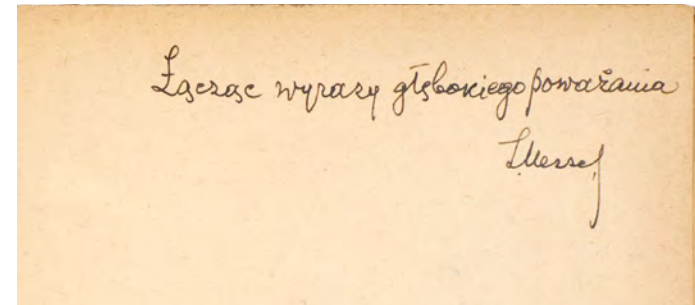 Łącząc wyrazy głębokiego poważania